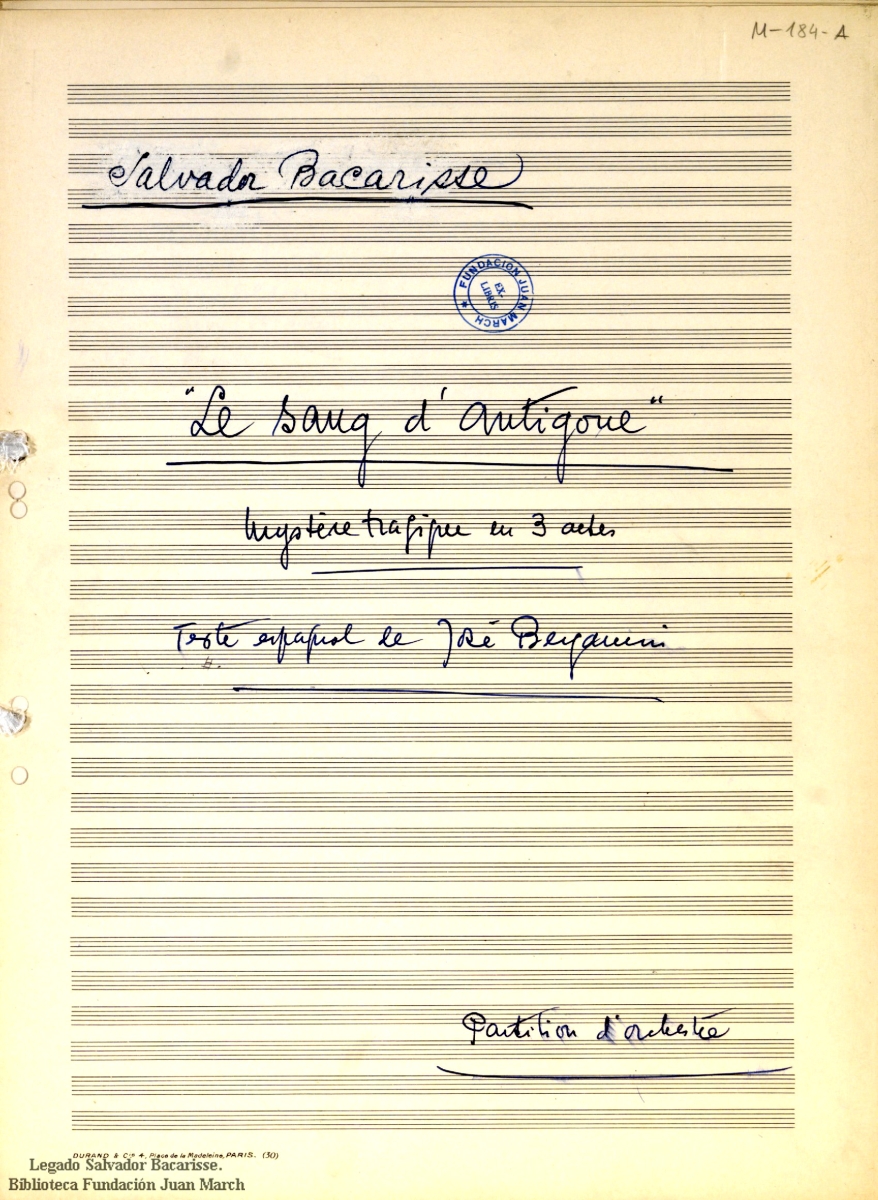 M-184-A
Salvador Bacarisse
FUNDACION JUAN MARCH
EX. LIBRIS
"Le sang d'Antigone"
Mystère tragique en 3 actes
Texte espagnol de José Bergamin
Partition d'orchestre
DURAND & Cie 4, Place de la Madeleine, PARIS. (30)
Legado Salvador Bacarisse.
Biblioteca Fundación Juan March